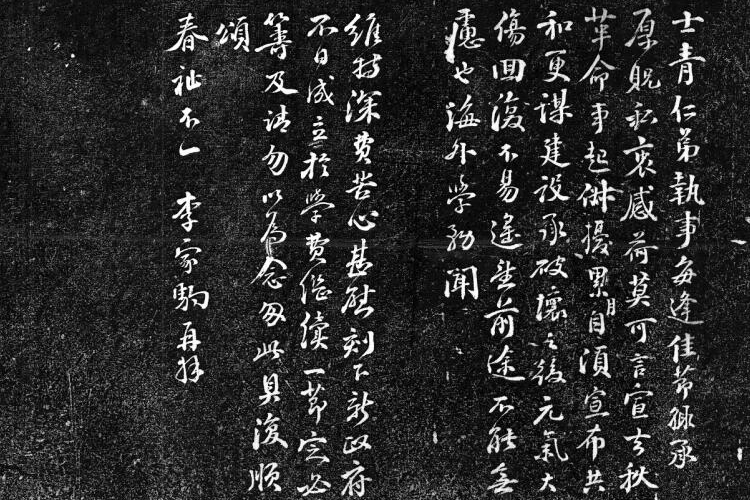 士青仁弟執事每逢佳節輒承
厚貺私衷感荷莫可言宣去秋
革命事起俶擾累月自須宣布共
和更謀建設承破壞之後元氣大
傷回復不易遙望前途不能無
慮也海外學務聞
維持深費苦心甚慰刻下新政府
不日成立於學費繼續一節定必
籌及請勿以為念匆此具復順
頌
春祉不一 李家駒再拜